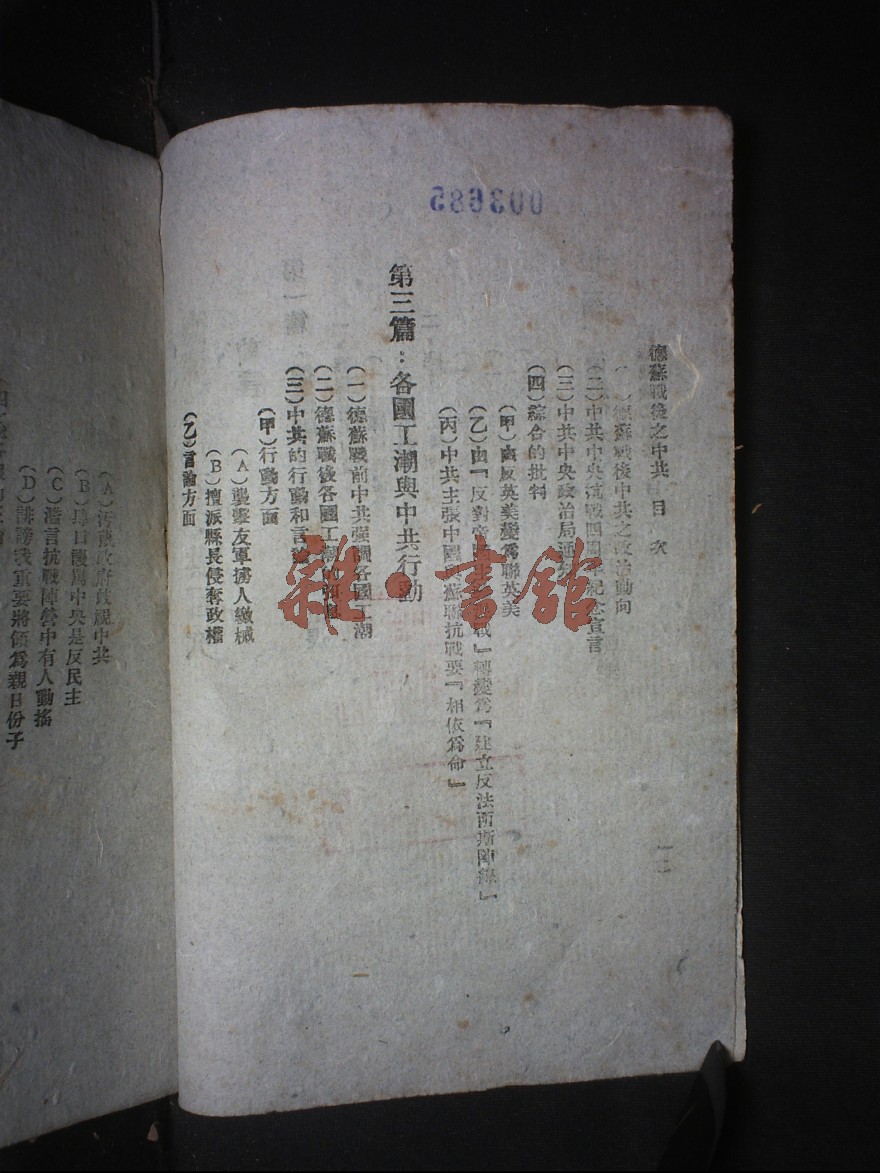 003685
德蘇戰後之中共 目次 二
(一)德蘇戰後中共之政治動向
(二)中共中央抗戰四周 紀念宣言
(三)中共中央政治局通
(四)綜合的批判
(甲)由反英美變爲聯英美
(乙)由『反對帝國 戰』轉變爲『建立反法西斯陣線』
(丙)中共主張中國與蘇聯抗戰要『相依爲命』
第三篇:各國工潮與中共行動
(一)德蘇戰前中共强調各國工潮
(二)德蘇戰後各國工潮的
(三)中共的行動和言論
(甲)行動方面
(A)襲擊友軍擄人繳械
(B)擅派縣長侵奪政權
(乙)言論方面
(A)污衊政府歧視中共
(B) 口謾罵中央是反民主
(C)濫言抗戰陣營中有人動搖
(D)誹謗我重要將領爲親日份子
雜·書館